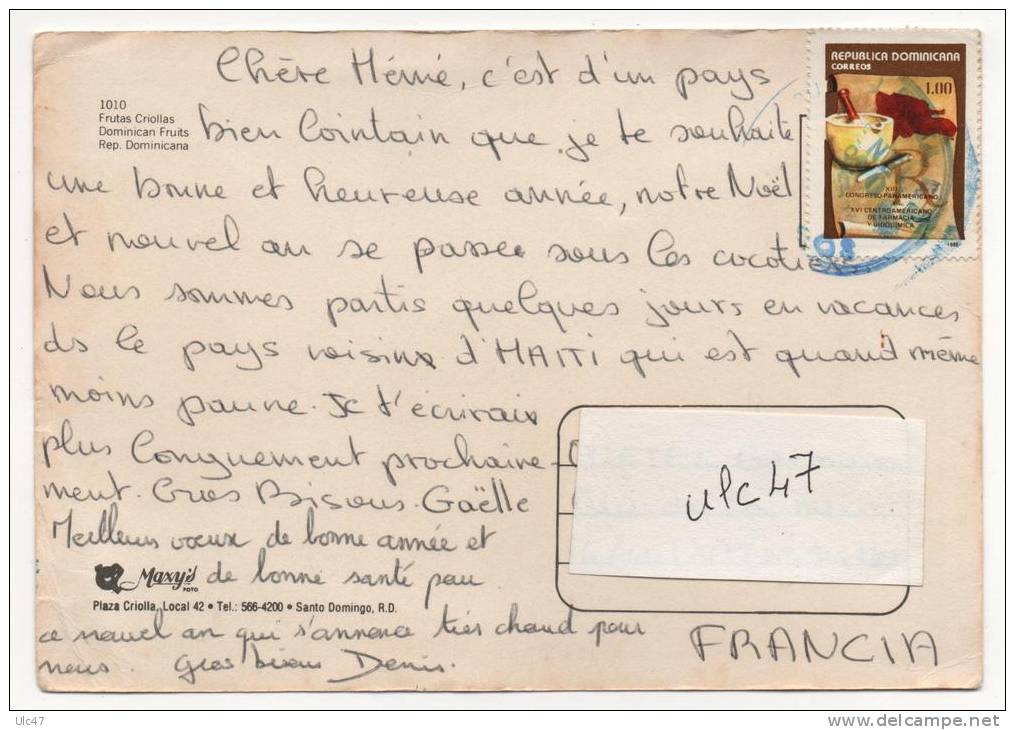 Chère Mémé, c'est d'un pays
bien lointain que je te souhaite
une bonne et heureuse année, notre Noël
et nouvel an se passe sous les cocotiers
Nous sommes partis quelques jours en vacances
ds le pays voisin d'HAITI qui est quand même
moins pauvre. Je t'écrirais
plus longuement prochaine-
ment. Gros Bisous. Gaëlle
Meilleurs voeux de bonne année et
de bonne santé pour
ce nouvel an qui s'annonce très chaud pour
nous. Gros bisous Denis.
1010
Frutas Criollas
Dominican Fruits
Rep. Dominicana
REPUBLICA DOMINICANA
CORREOS
1.00
XIII
CONGRESO PANAMERICANO
XVI CENTROAMERICANO
DE FARMACIA
Y BIOQUIMICA
ulc47
Maxy's
FOTO
Plaza Criolla, Local 42 • Tel.: 566-4200 • Santo Domingo, R.D.
FRANCIA
Ulc47
www.delcampe.net